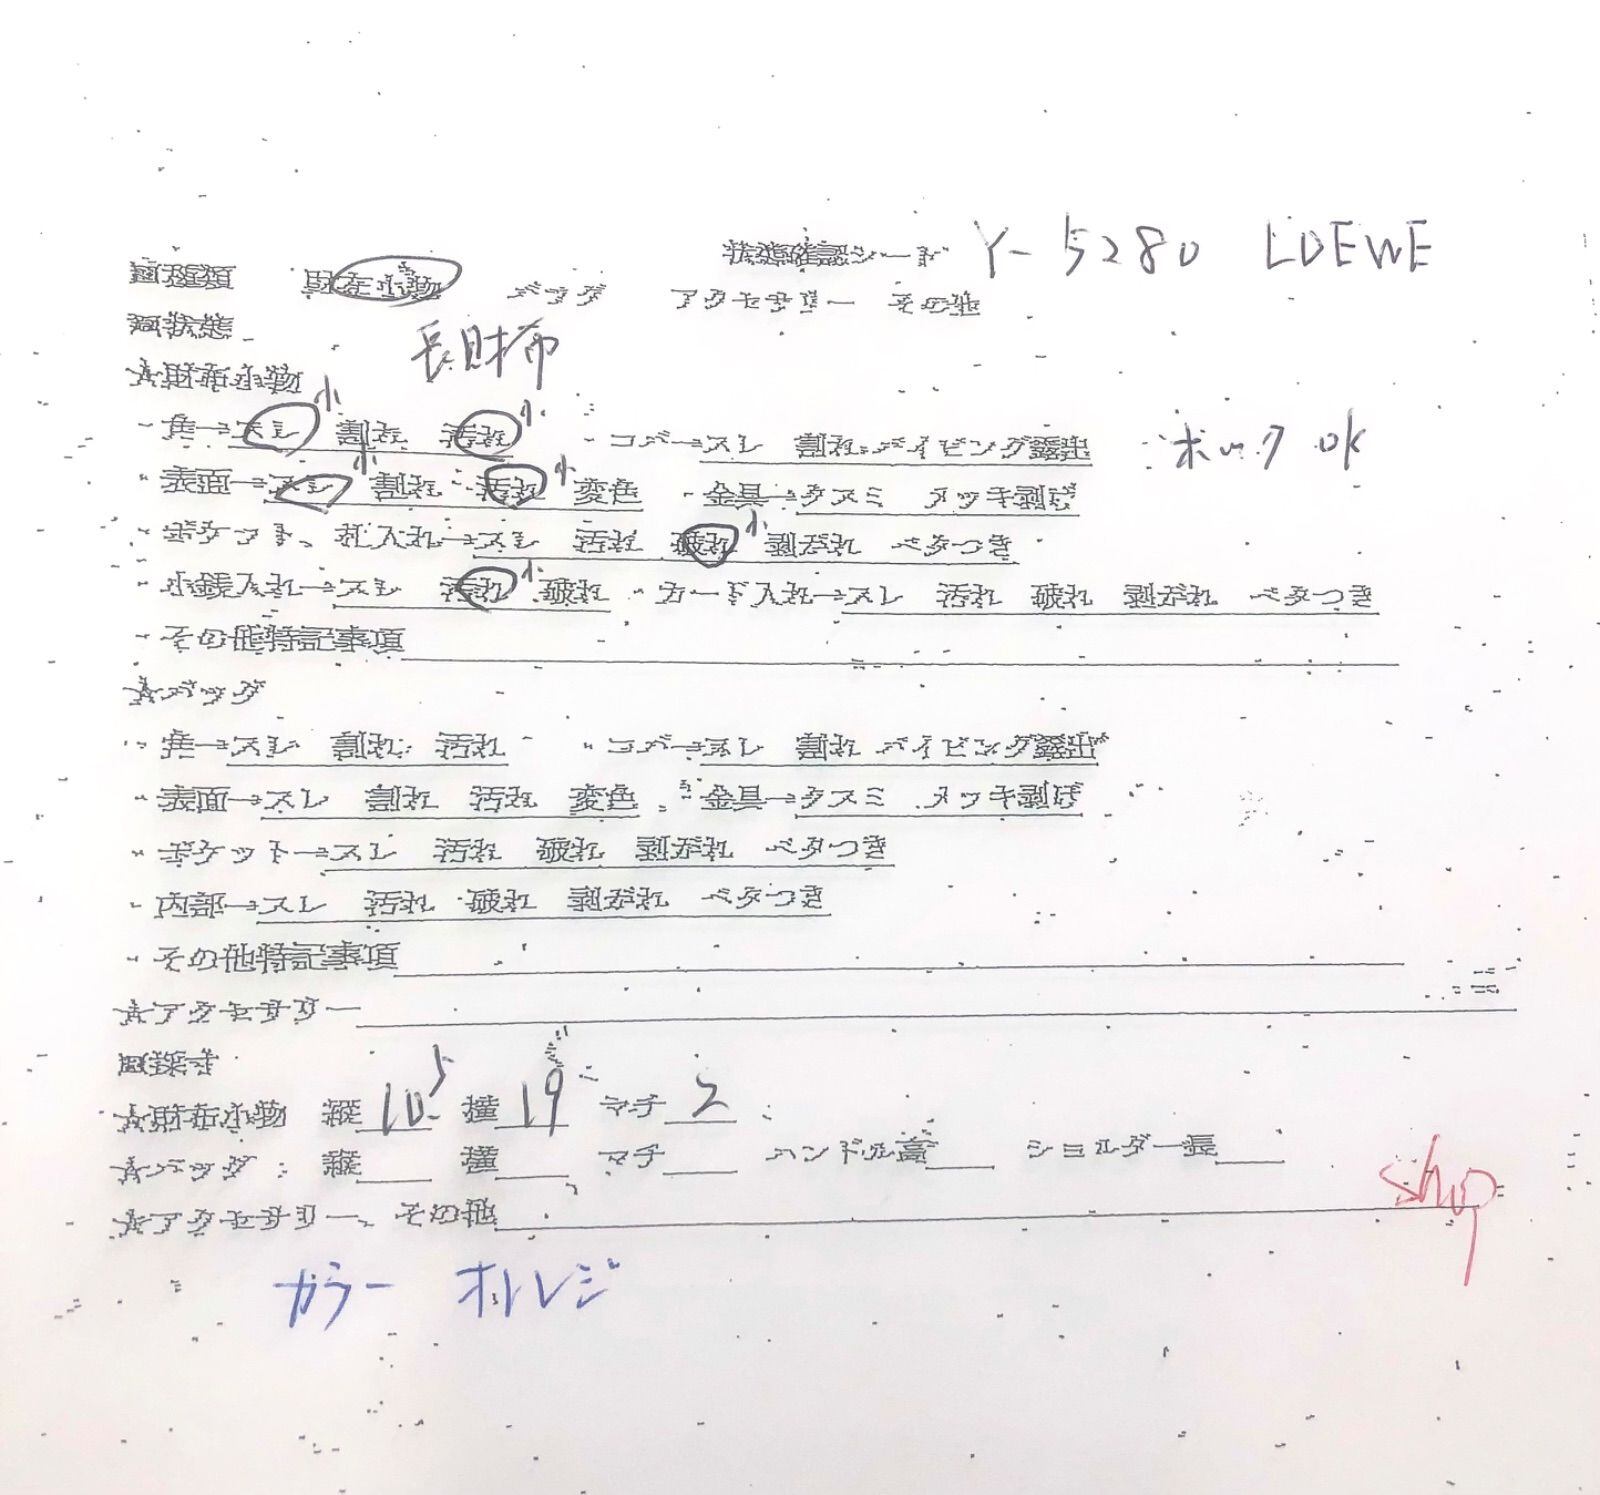 状態確認シート Y-5280 LOEWE
種類 財布小物 バッグ アクセサリー その他
状態
長財布
☆財布小物
・角→スレ 小 割れ 汚れ 小 ・コバ→スレ 割れ パイピング露出 ホック OK
・表面→スレ 小 割れ 汚れ 小 変色 ・金具→クスミ メッキ剥げ
・ポケット、札入れ→スレ 汚れ 破れ 小 剥がれ ベタつき
・小銭入れ→スレ 汚れ 小 破れ ・カード入れ→スレ 汚れ 破れ 剥がれ ベタつき
・その他特記事項
☆バッグ
・角→スレ 割れ 汚れ ・コバ→スレ 割れ パイピング露出
・表面→スレ 割れ 汚れ 変色 ・金具→クスミ メッキ剥げ
・ポケット→スレ 汚れ 破れ 剥がれ ベタつき
・内部→スレ 汚れ 破れ 剥がれ ベタつき
・その他特記事項
☆アクセサリー
採寸
☆財布小物 縦 10.5 横 19 マチ 2
☆バッグ 縦 横 マチ ハンドル高 ショルダー長
☆アクセサリー、その他
shop
カラー オレンジ